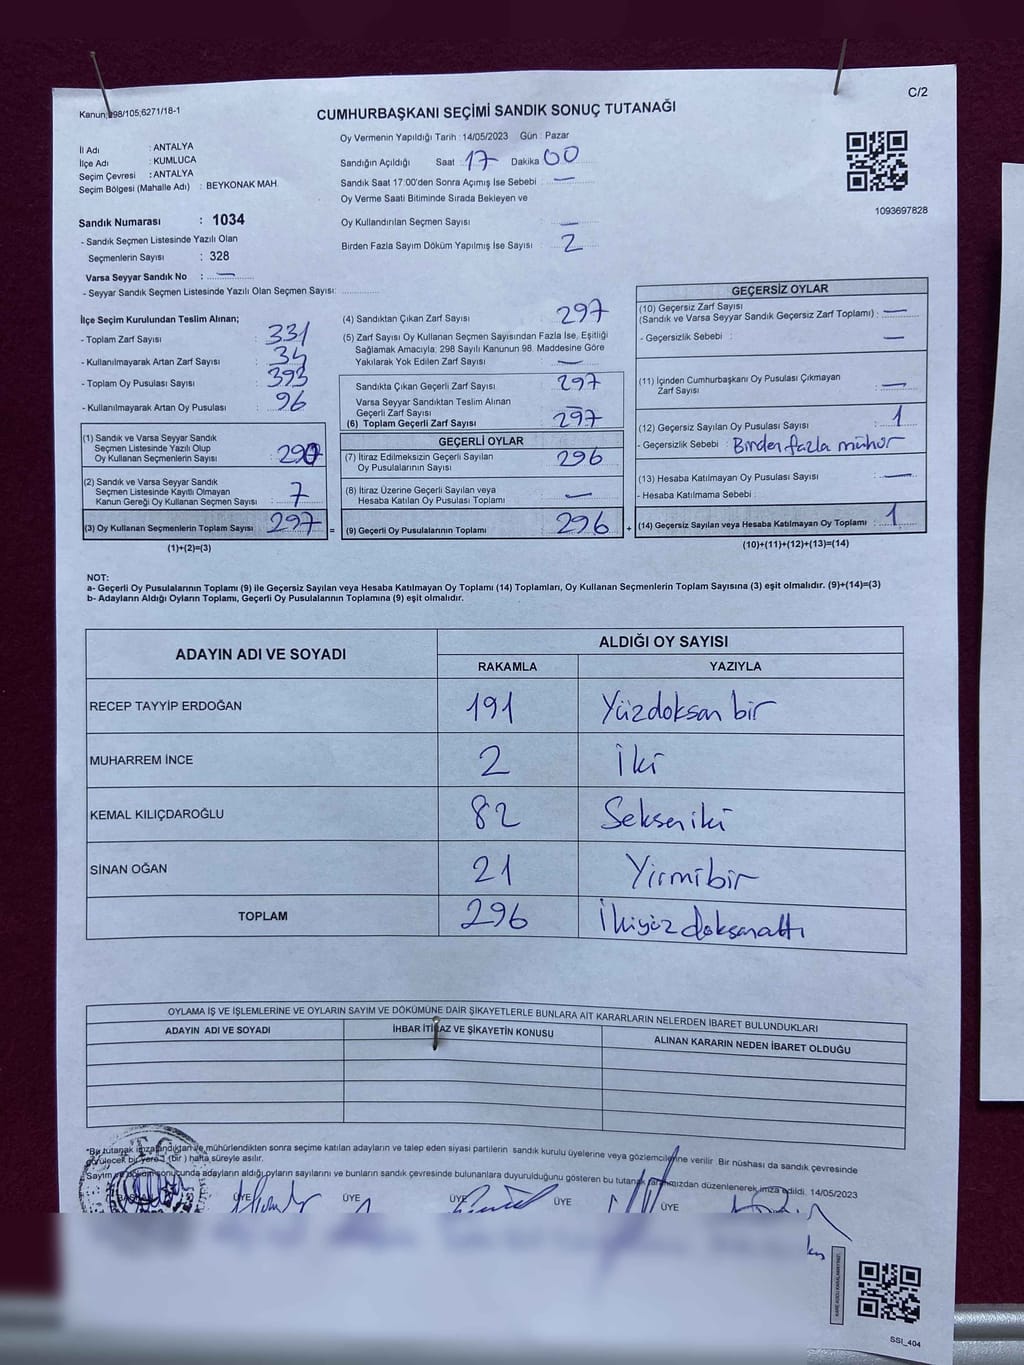 C/2
Kanun;298/105;6271/18-1
CUMHURBAŞKANI SEÇİMİ SANDIK SONUÇ TUTANAĞI
Oy Vermenin Yapıldığı Tarih : 14/05/2023 Gün : Pazar
İl Adı : ANTALYA
İlçe Adı : KUMLUCA
Seçim Çevresi : ANTALYA
Seçim Bölgesi (Mahalle Adı) : BEYKONAK MAH.
Sandığın Açıldığı Saat : 17 Dakika 00
Sandık Saat 17:00'den Sonra Açımış İse Sebebi : —
Oy Verme Saati Bitiminde Sırada Bekleyen ve
Oy Kullandırılan Seçmen Sayısı : —
Birden Fazla Sayım Döküm Yapılmış İse Sayısı : 2
1093697828
Sandık Numarası : 1034
- Sandık Seçmen Listesinde Yazılı Olan
Seçmenlerin Sayısı : 328
Varsa Seyyar Sandık No : —
- Seyyar Sandık Seçmen Listesinde Yazılı Olan Seçmen Sayısı:
İlçe Seçim Kurulundan Teslim Alınan;
- Toplam Zarf Sayısı : 331
- Kullanılmayarak Artan Zarf Sayısı : 34
- Toplam Oy Pusulası Sayısı : 393
- Kullanılmayarak Artan Oy Pusulası : 96
(1) Sandık ve Varsa Seyyar Sandık
Seçmen Listesinde Yazılı Olup
Oy Kullanan Seçmenlerin Sayısı : 290
(2) Sandık ve Varsa Seyyar Sandık
Seçmen Listesinde Kayıtlı Olmayan
Kanun Gereği Oy Kullanan Seçmen Sayısı : 7
(3) Oy Kullanan Seçmenlerin Toplam Sayısı : 297
(1)+(2)=(3)
(4) Sandıktan Çıkan Zarf Sayısı : 297
(5) Zarf Sayısı Oy Kullanan Seçmen Sayısından Fazla İse, Eşitliği
Sağlamak Amacıyla, 298 Sayılı Kanunun 98. Maddesine Göre
Yakılarak Yok Edilen Zarf Sayısı : —
Sandıkta Çıkan Geçerli Zarf Sayısı : 297
Varsa Seyyar Sandıktan Teslim Alınan
Geçerli Zarf Sayısı : —
(6) Toplam Geçerli Zarf Sayısı : 297
GEÇERLİ OYLAR
(7) İtiraz Edilmeksizin Geçerli Sayılan
Oy Pusulalarının Sayısı : 296
(8) İtiraz Üzerine Geçerli Sayılan veya
Hesaba Katılan Oy Pusulası Toplamı : —
= (9) Geçerli Oy Pusulalarının Toplamı : 296 +
GEÇERSİZ OYLAR
(10) Geçersiz Zarf Sayısı
(Sandık ve Varsa Seyyar Sandık Geçersiz Zarf Toplamı) : —
- Geçersizlik Sebebi : —
(11) İçinden Cumhurbaşkanı Oy Pusulası Çıkmayan
Zarf Sayısı : —
(12) Geçersiz Sayılan Oy Pusulası Sayısı : 1
- Geçersizlik Sebebi : Birden fazla mühür
(13) Hesaba Katılmayan Oy Pusulası Sayısı : —
- Hesaba Katılmama Sebebi :
(14) Geçersiz Sayılan veya Hesaba Katılmayan Oy Toplamı : 1
(10)+(11)+(12)+(13)=(14)
NOT:
a- Geçerli Oy Pusulalarının Toplamı (9) ile Geçersiz Sayılan veya Hesaba Katılmayan Oy Toplamı (14) Toplamları, Oy Kullanan Seçmenlerin Toplam Sayısına (3) eşit olmalıdır. (9)+(14)=(3)
b- Adayların Aldığı Oyların Toplamı, Geçerli Oy Pusulalarının Toplamına (9) eşit olmalıdır.
ADAYIN ADI VE SOYADI ALDIĞI OY SAYISI
RAKAMLA YAZIYLA
RECEP TAYYİP ERDOĞAN 191 Yüzdoksan bir
MUHARREM İNCE 2 İki
KEMAL KILIÇDAROĞLU 82 Sekseniki
SİNAN OĞAN 21 Yirmibir
TOPLAM 296 İkiyüz doksanaltı
OYLAMA İŞ VE İŞLEMLERİNE VE OYLARIN SAYIM VE DÖKÜMÜNE DAİR ŞİKAYETLERLE BUNLARA AİT KARARLARIN NELERDEN İBARET BULUNDUKLARI
ADAYIN ADI VE SOYADI İHBAR İTİRAZ VE ŞİKAYETİN KONUSU ALINAN KARARIN NEDEN İBARET OLDUĞU
*Bu tutanak imzalandıktan ve mühürlendikten sonra seçime katılan adayların ve talep eden siyasi partilerin sandık kurulu üyelerine veya gözlemcilerine verilir Bir nüshası da sandık çevresinde
görülecek bir yere 1 (bir ) hafta süreyle asılır.
Sayım ve döküm sonucunda adayların aldığı oyların sayılarını ve bunların sandık çevresinde bulunanlara duyurulduğunu gösteren bu tutanak tarafımızdan düzenlenerek imza edildi. 14/05/2023
BAŞKAN ÜYE ÜYE ÜYE ÜYE ÜYE
SSI_404